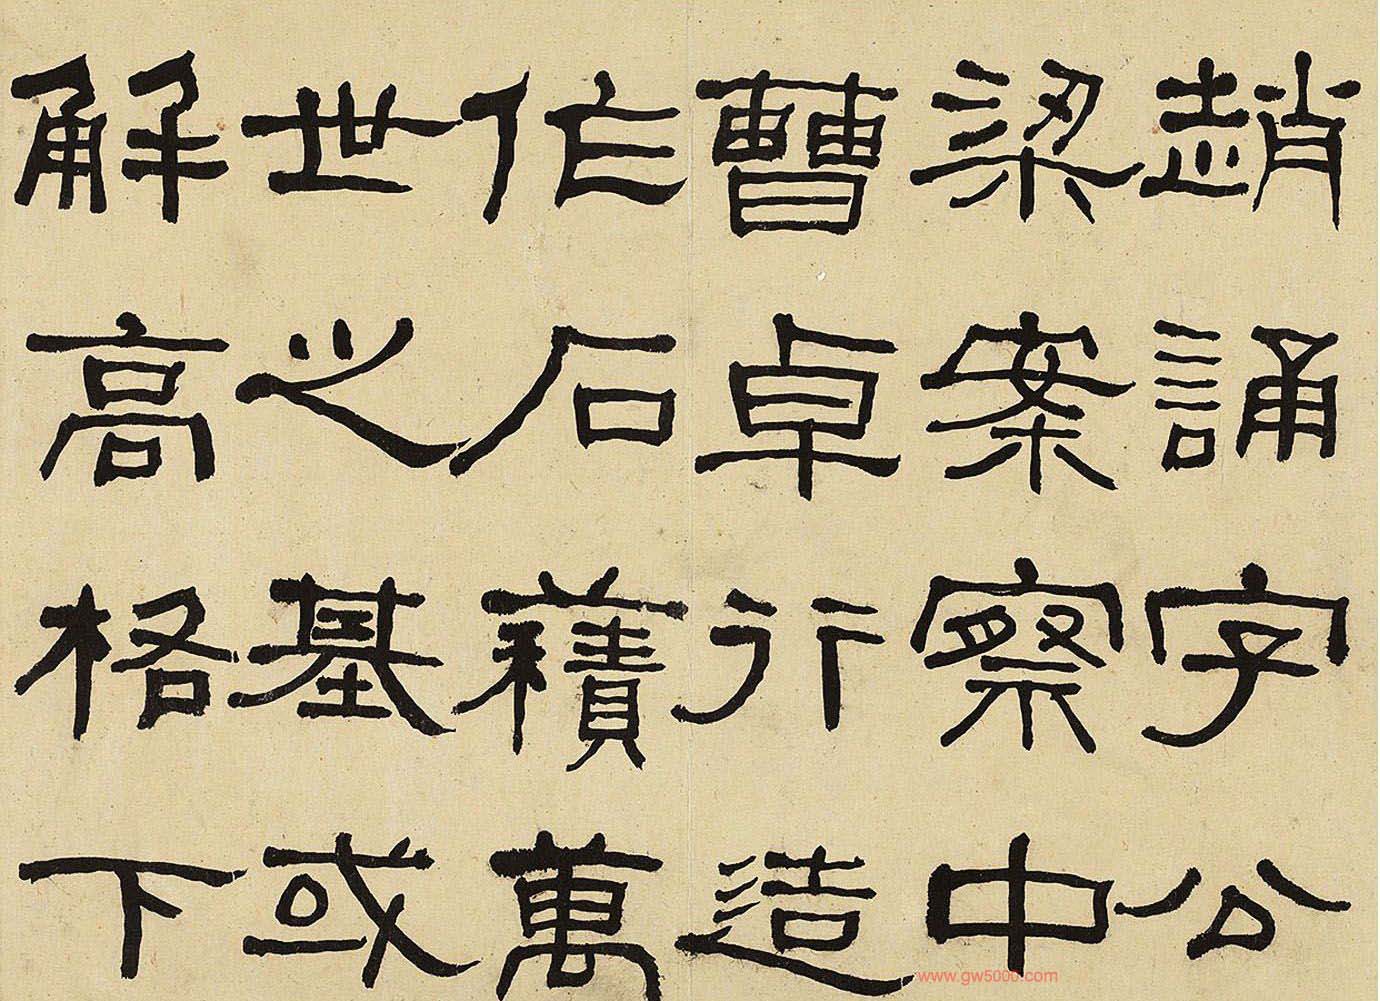 趙誦字公
梁案察中
曹卓行造
作石藉萬
世之基或
解高格下
www.gw5000.com